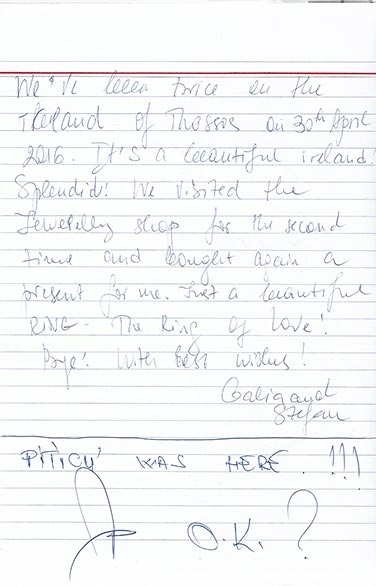 We've been twice on the
Ireland of Thassos on 30th April
2016. It's a beautiful ireland!
Splendid! We visited the
Jewerelly shop for the second
time and bought again a
present for me. Just a beautiful
RING - The Ring of Love!
Bye! With best wishes!
Gali and
Stefan
PITICU' WAS HERE. !!!
O.K. ?